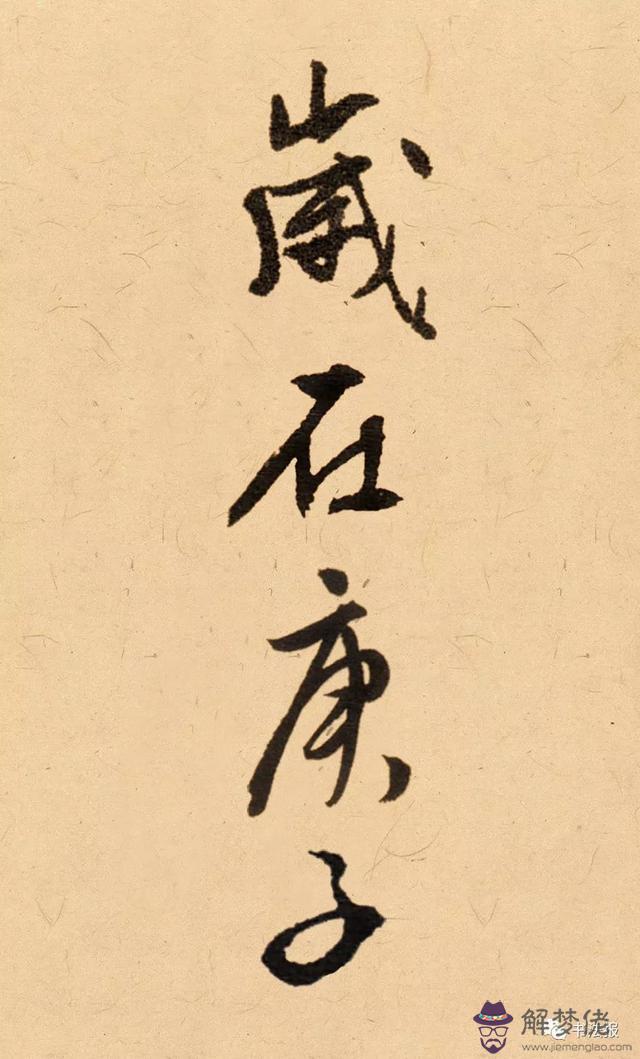 歲在庚子
解梦佬
书法报
www.jiemenglao.com